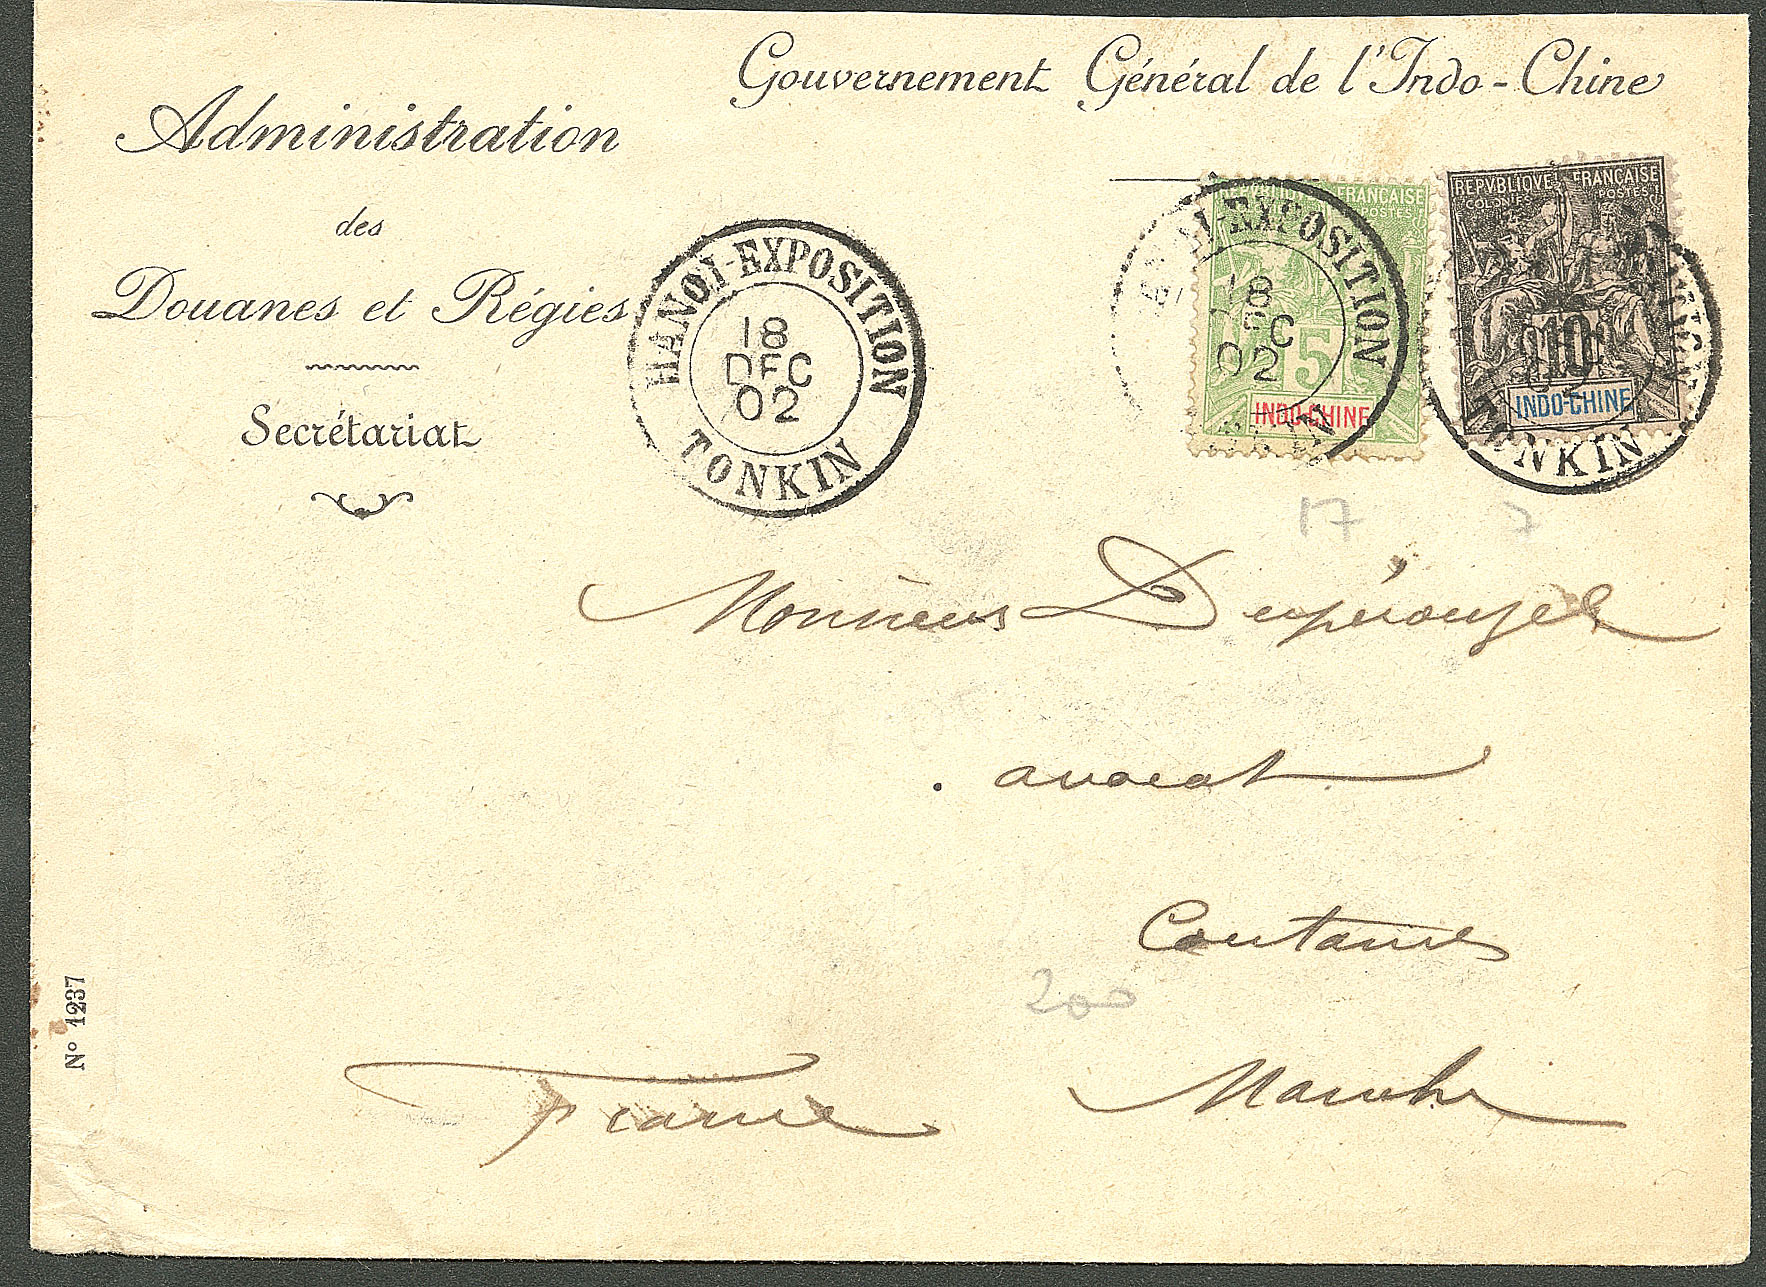 Gouvernement Général de l'Indo-Chine
Administration
des
Douanes et Régies
Secrétariat
HANOI-EXPOSITION
18
DEC
02
TONKIN
REPVBLIQVE FRANÇAISE
COLONIES POSTES
EXPOSITION
18
02
5
INDO-CHINE
REPVBLIQVE FRANÇAISE
COLONIES POSTES
10
INDO-CHINE
TONKIN
17 7
Monsieur Dupérouzel
avocat
Coutances
200
Manche
France
N° 1237